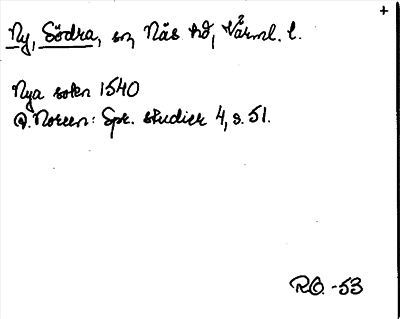 +
Ny, Södra, sn, Näs hd, Värml. l.
Nya sokn 1540
A. Noreen: Spr. studier 4, s. 51.
R.O. -53